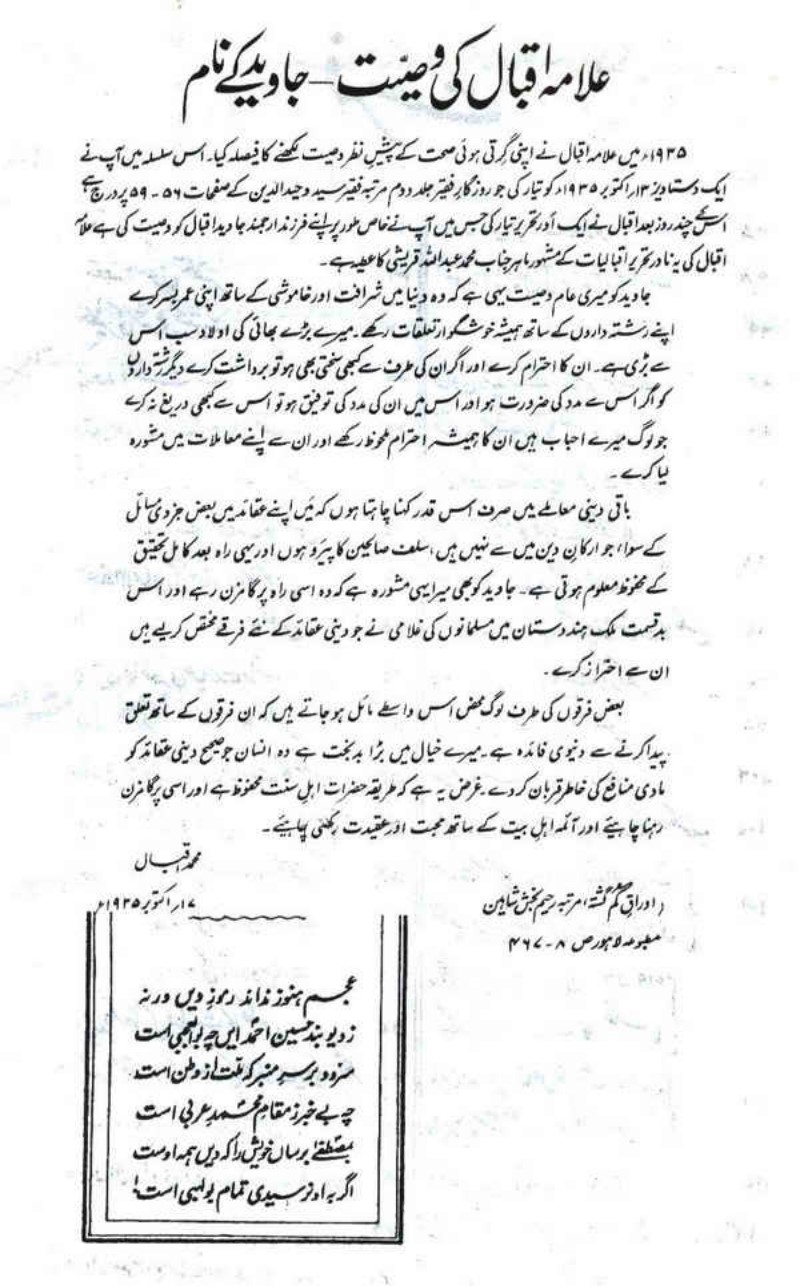 علامہ اقبال کی وصیّت – جاوید کے نام
۱۹۳۵ء میں علامہ اقبال نے اپنی گرتی ہوئی صحت کے پیشِ نظر وصیت لکھنے کا فیصلہ کیا۔ اس سلسلہ میں آپ نے
ایک دستاویز ۱۳ اکتوبر ۱۹۳۵ء کو تیار کی جو روزگارِ فقیر جلد دوم مرتبہ فقیر سید وحید الدین کے صفحات ۵۶ - ۵۹ پر درج ہے
اس کے چند روز بعد اقبال نے ایک اور تحریر تیار کی جس میں آپ نے خاص طور پر اپنے فرزند ارجمند جاوید اقبال کو وصیت کی ہے علامہ
اقبال کی یہ نادر تحریر اقبالیات کے مشہور ماہر جناب محمد عبد اللہ قریشی کا عطیہ ہے۔
جاوید کو میری عام وصیت یہی ہے کہ وہ دنیا میں شرافت اور خاموشی کے ساتھ اپنی عمر بسر کرے
اپنے رشتہ داروں کے ساتھ ہمیشہ خوشگوار تعلقات رکھے۔ میرے بڑے بھائی کی اولاد سب اس
سے بڑی ہے۔ ان کا احترام کرے اور اگر ان کی طرف سے کبھی سختی بھی ہو تو برداشت کرے دیگر رشتہ داروں
کو اگر اس سے مدد کی ضرورت ہو اور اس میں ان کی مدد کی توفیق ہو تو اس سے کبھی دریغ نہ کرے
جو لوگ میرے احباب ہیں ان کا ہمیشہ احترام ملحوظ رکھے اور ان سے اپنے معاملات میں مشورہ
لیا کرے۔
باقی دینی معاملے میں صرف اس قدر کہنا چاہتا ہوں کہ میں اپنے عقائد میں بعض جزوی مسائل
کے سوا، جو ارکانِ دین میں سے نہیں ہیں، سلف صالحین کا پیرو ہوں اور یہی راہ بعد کامل تحقیق
کے محفوظ معلوم ہوتی ہے۔ جاوید کو بھی میرا یہی مشورہ ہے کہ وہ اسی راہ پر گامزن رہے اور اس
بدقسمت ملک ہندوستان میں مسلمانوں کی غلامی نے جو دینی عقائد کے نئے فرقے مختص کر لیے ہیں
ان سے احتراز کرے۔
بعض فرقوں کی طرف لوگ محض اس واسطے مائل ہو جاتے ہیں کہ ان فرقوں کے ساتھ تعلق
پیدا کرنے سے دنیوی فائدہ ہے۔ میرے خیال میں بڑا بدبخت ہے وہ انسان جو صحیح دینی عقائد کو
مادی منافع کی خاطر قربان کر دے۔ غرض یہ ہے کہ طریقہ حضرات اہلِ سنت محفوظ ہے اور اسی پر گامزن
رہنا چاہیئے اور آئمہ اہلِ بیت کے ساتھ محبت اور عقیدت رکھنی چاہیئے۔
محمد اقبال
۱۷ اکتوبر ۱۹۳۵ء
(اوراقِ گم گشتہ، مرتبہ رحیم بخش شاہین
مطبوعہ لاہور ص ۸ - ۴۶۷
عجم ہنوز نداند رموزِ دیں ورنہ
ز دیوبند حسین احمدؐ ایں چہ بوالعجبی است
سرود بر سرِ منبر کہ ملت از وطن است
چہ بے خبر ز مقامِ محمدِ عربی است
بمصطفےٰؐ برساں خویش را کہ دیں ہمہ اوست
اگر بہ او نرسیدی تمام بولہبی است!